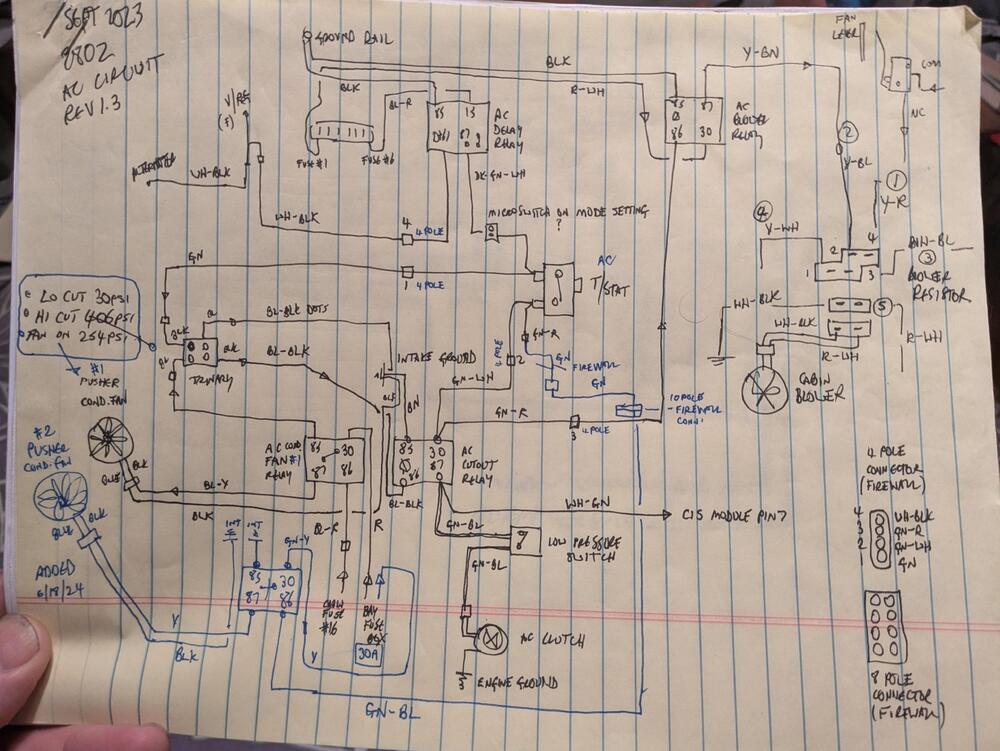 SEPT 2023
8802
AC CIRCUIT
REV 1.3
GROUND RAIL
BLK
BLK
BL-R
R-WH
Y-GN
FAN
LEVER
COM
NC
FUSE #1
FUSE #6
85
15
87
AC
DELAY
RELAY
85
87
86
30
AC
BLOWER
RELAY
2
Y-BL
1
Y-R
ALTERNATOR
WH-BLK
WH-BLK
DK-GN-WH
4
4 POLE
MICROSWITCH ON MODE SETTING
?
4
Y-WH
2
4
1
3
BRN-BL
3
BLOWER
RESISTOR
GN
1
4 POLE
AC
T/STAT
WH-BLK
5
WH-BLK
R-WH
R-WH
CABIN
BLOWER
LO CUT 30PSI
HI CUT 406PSI
FAN ON 254PSI
BLK
BL-BLK DOTS
BL-BLK
TRINARY
INTAKE GROUND
BN
4 POLE
2
GN-R
GN-WH
GN
FIREWALL
GN
10 POLE
- FIREWALL
CONN.
#1
PUSHER
COND. FAN
GN-R
3
4 POLE
#2
PUSHER
COND. FAN
BLK
BLUE
BL-Y
BLK
AC COND.
FAN #1
RELAY
85
30
87
86
85
30
87
86
AC
CUTOUT
RELAY
BL-BLK
WH-GN
CIS MODULE PIN 7
BL-R
R
GN-BL
GN-BL
LOW PRESSURE
SWITCH
BLK
BLUE
ADDED
6/18/24
GN-Y
85
30
87
86
CABIN
FUSE
#16
BAY
FUSE
BOX
30A
Y
BLK
Y
GN-BL
AC CLUTCH
ENGINE GROUND
4 POLE
CONNECTOR
(FIREWALL)
4 WH-BLK
3 GN-R
2 GN-WH
1 GN
8 POLE
CONNECTOR
(FIREWALL)